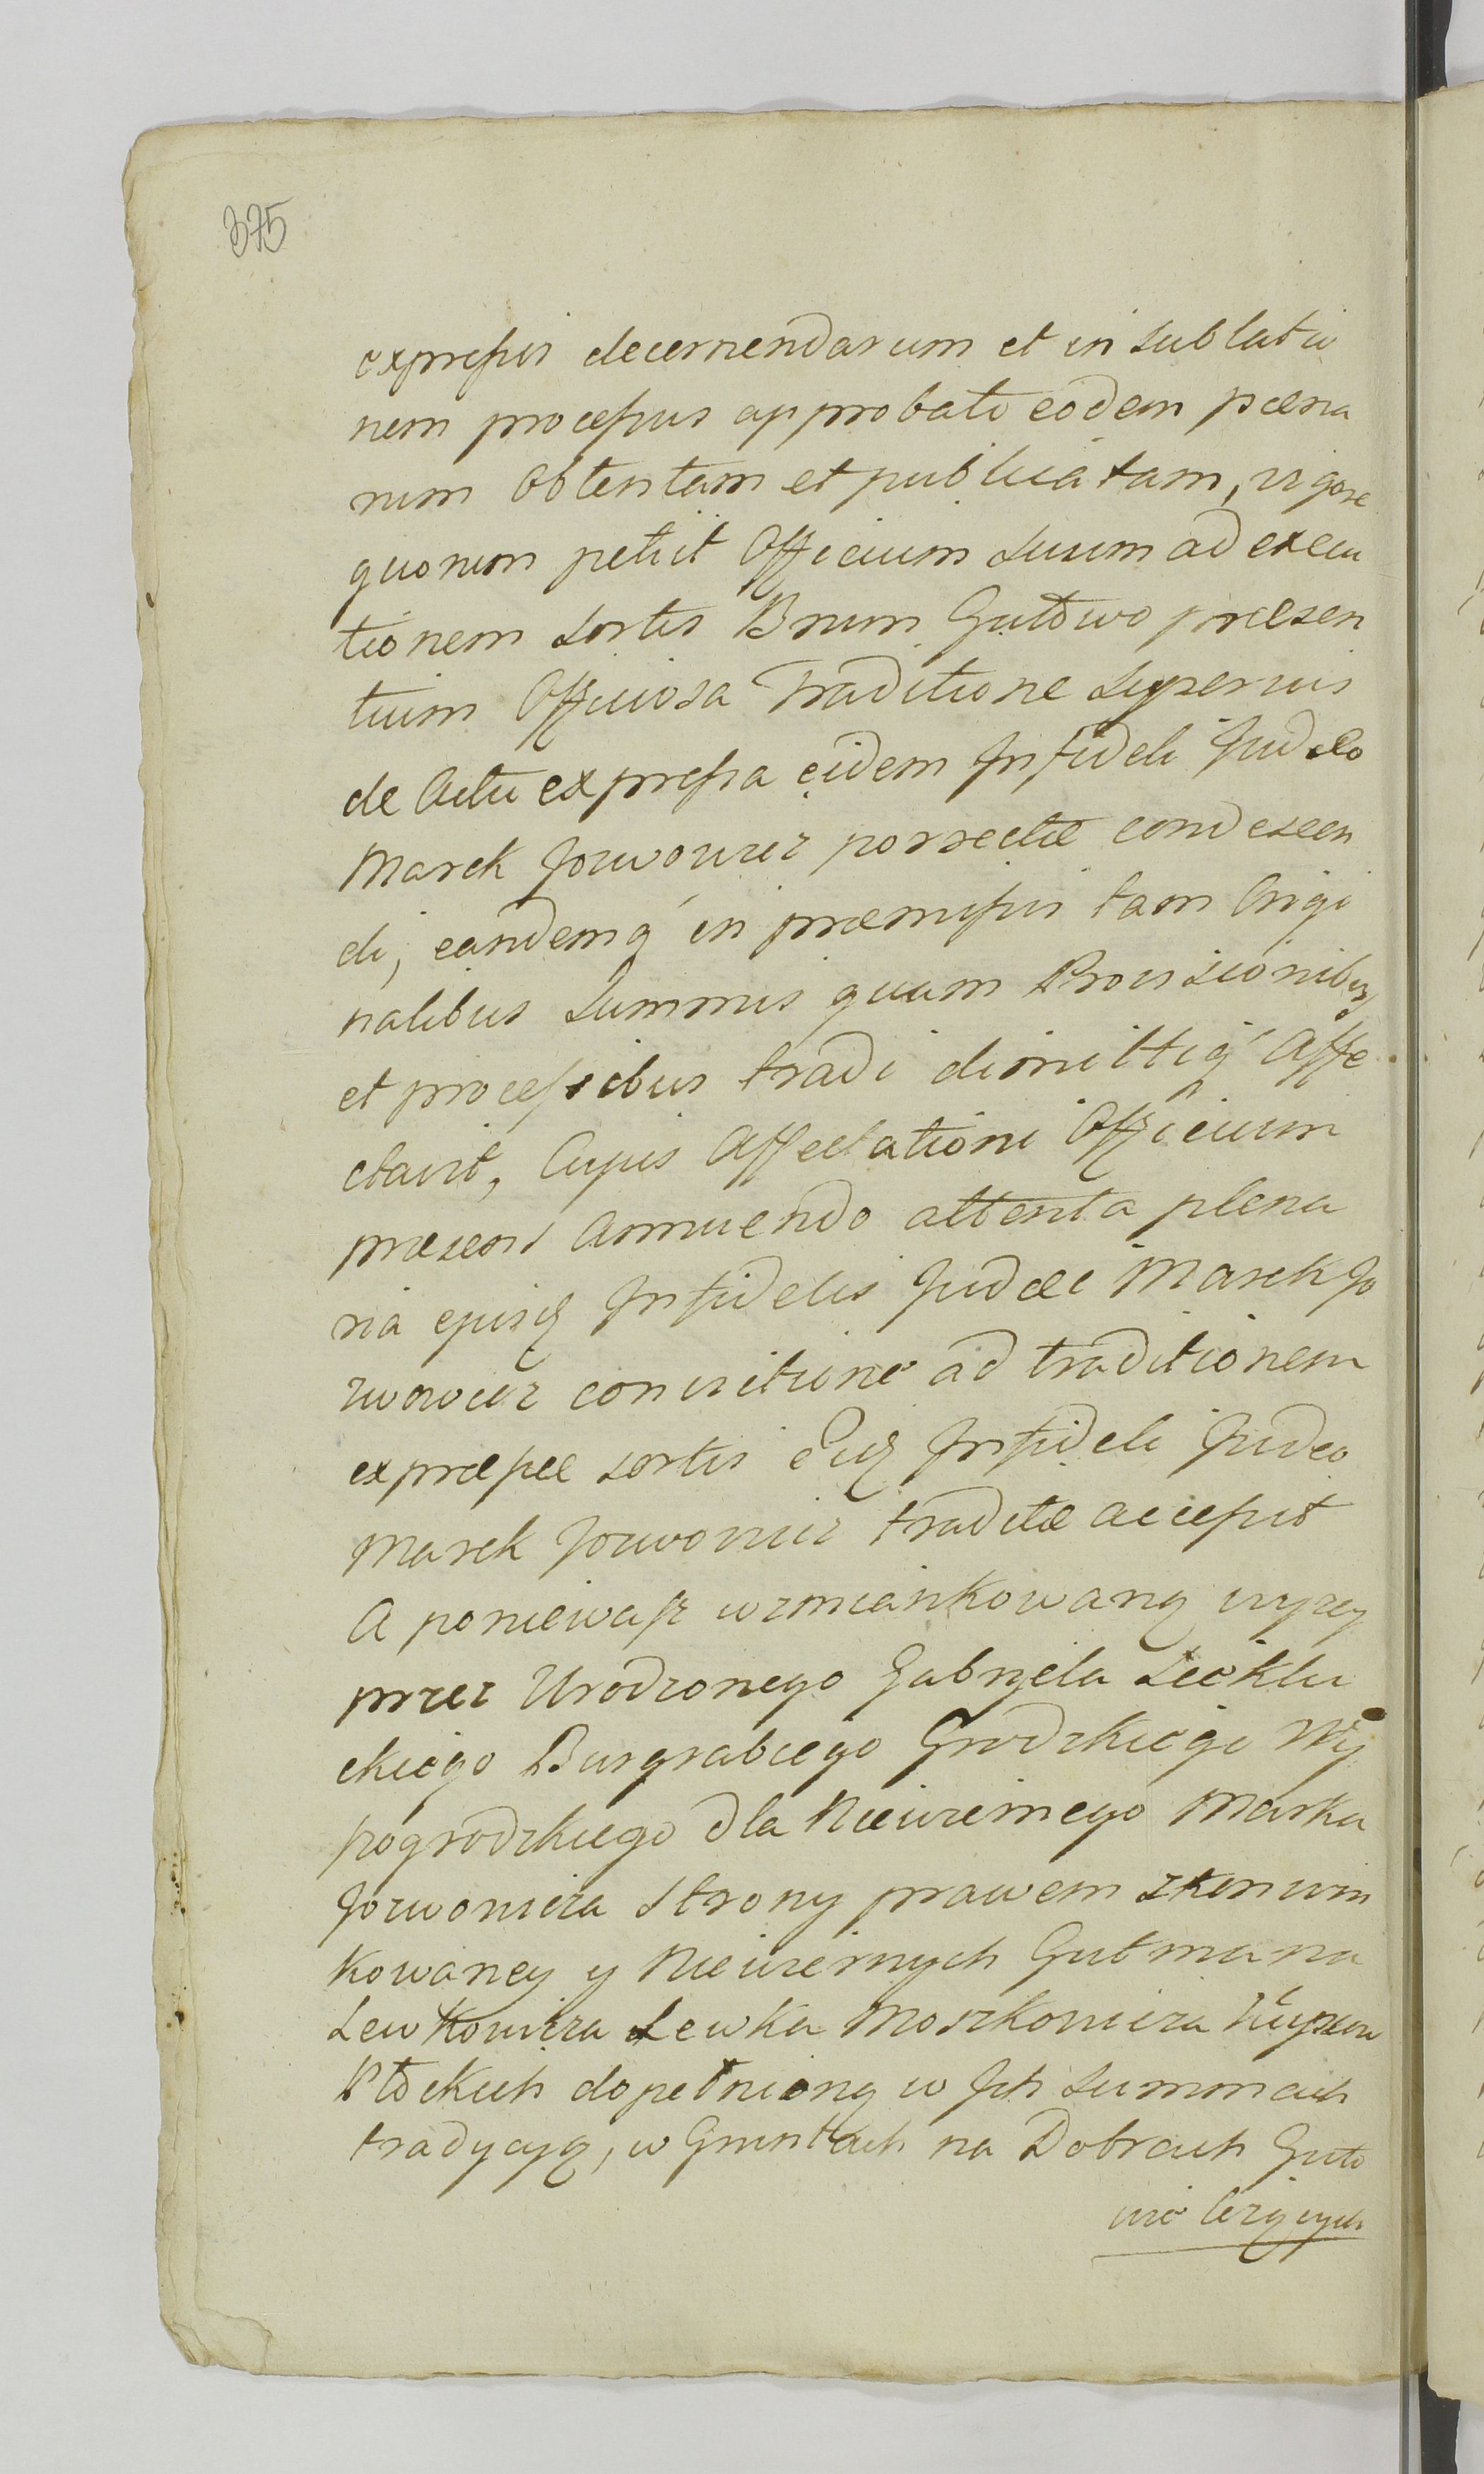 375
expressis decernendarum et in sublatio
nem processus approbato eodem pæna
rum obtentam et publicatam, vigore
quorum petiit Officium Suum ad execu
tionem Sortis Bnrum Gutowo præsen
tium Officiosa Traditione superius
de Actu expressa eidem Infideli Judæo
Marek Jozwowicz porrectæ condescen
di, eandemq́ in præmissis tam Origi
nalibus Summis quam Provisionibus
et processibus tradi dimittiq́ Affe
ctavit, Cujus Affectationi Officium
præsens Annuendo attenta plena
ria ejusq Infidelis Judæi Marek Jo
zwowicz convictione ad traditionem
expræssæ sortis Eidq Infideli Judeo
Marek Jozwowicz traditæ accessit
A ponieważ wzmiankowaną wyzey
przez Urodzonego Gabryela Seeklu
ckiego Burgrabiego Grodzkiego Wy
szogrodzkiego dla Niewiernego Marka
Jozwowicza Strony prawem zkonwin
kowaney y Niewiernych Gutmana
Lewkowicza Lewka Moszkowicza
Płockich dopełnioną w Ich Summach
tradycyą, w Gruntach na Dobrach Guto
wie leżących